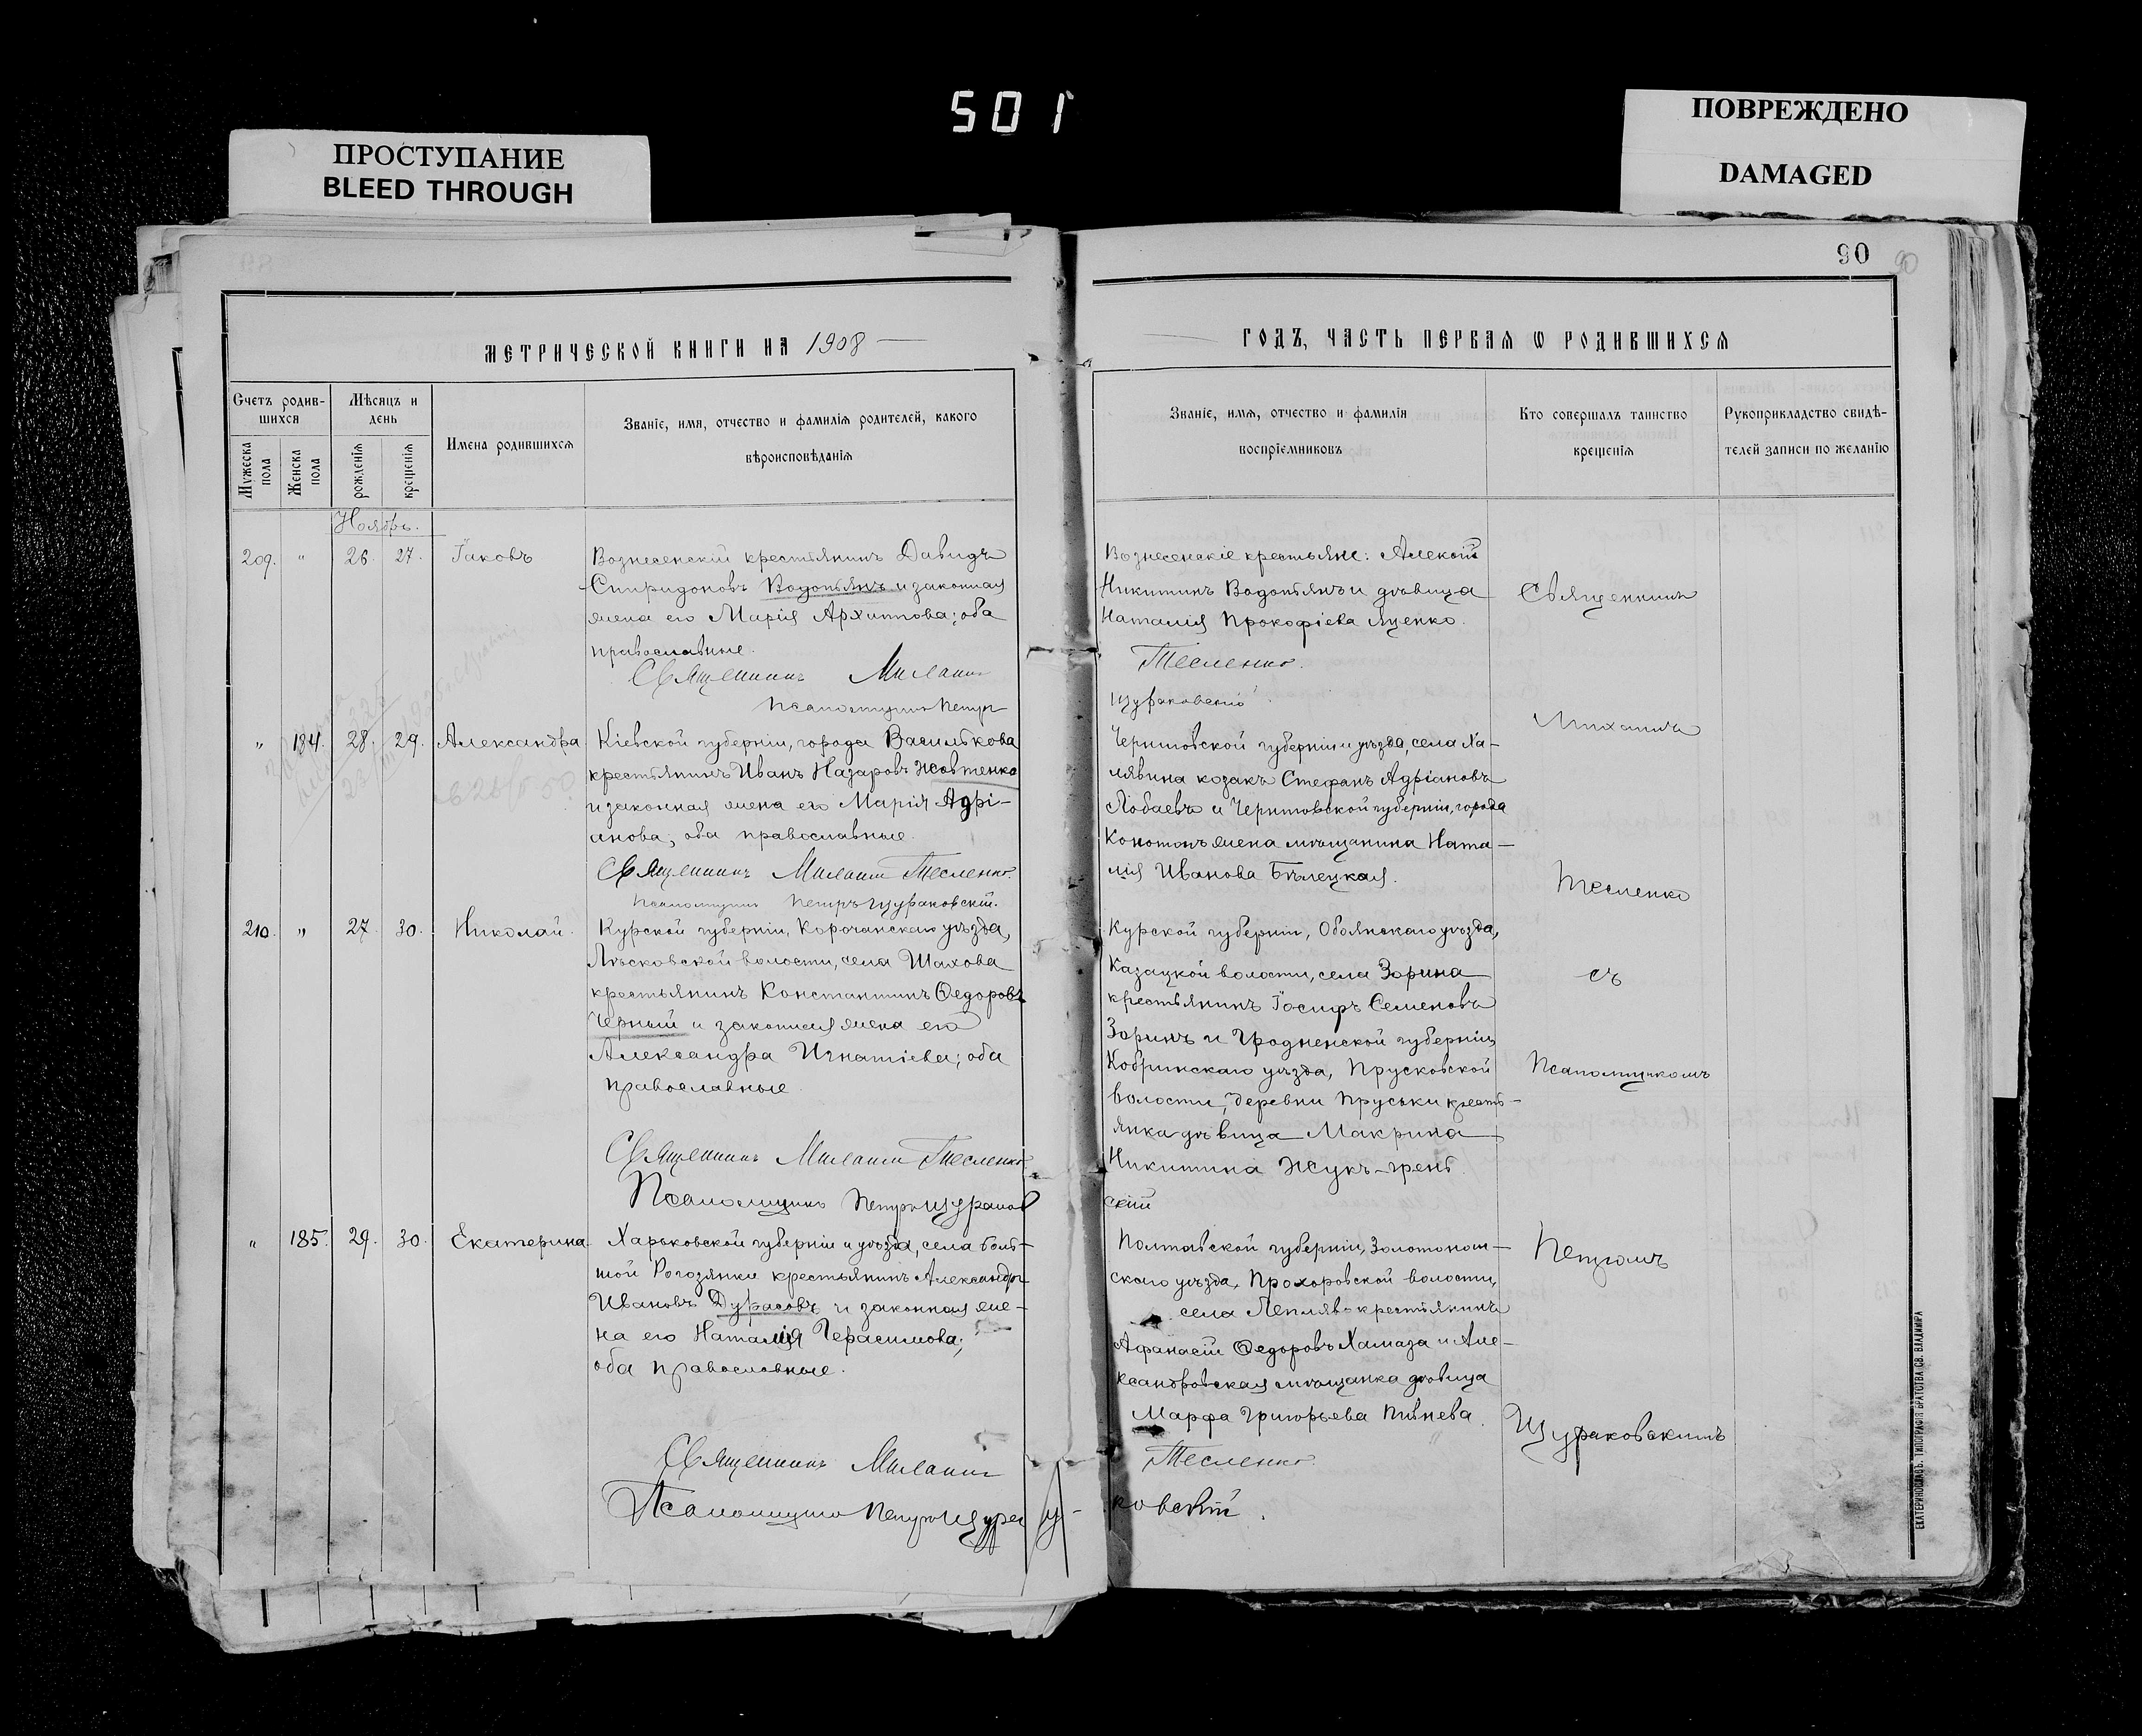 501
ПРОСТУПАНИЕ
BLEED THROUGH
ПОВРЕЖДЕНО
DAMAGED
90
90
МЕТРИЧЕСКОЙ КНИГИ НА 1908
Счетъ родив-
шихся
Мѣсяцъ и
день
Имена родившихся
Званіе, имя, отчество и фамилія родителей, какого
вѣроисповѣданія
Мужеска
пола
Женска
пола
рожденія
крещенія
Ноябрь.
209. " 26. 27. Іаковъ
Вознесенскій крестьянинъ Давидъ
Спиридоновъ Водопьянъ и законная
жена его Марія Архипова; оба
православные.
Священникъ Михаилъ
Псаломщикъ Петръ
" 184. 28. 29. Александра
Кіевской губерніи, города Василькова
крестьянинъ Иванъ Назаровъ Жовтенко
и законная жена его Марія Адрі-
анова; оба православные.
Священникъ Михаилъ Тесленко.
Псаломщикъ Петръ Щураковскій.
210. " 27. 30. Николай.
Курской губерніи, Корочанскаго уѣзда,
Лѣсковской волости, села Шахова
крестьянинъ Константинъ Ѳедоровъ
Черный и законная жена его
Александра Игнатіева; оба
православные.
Священникъ Михаилъ Тесленко
Псаломщикъ Петръ Щураков
" 185. 29. 30. Екатерина.
Харьковской губерніи и уѣзда, села Боль-
шой Рогозянки крестьянинъ Александръ
Ивановъ Дурасовъ и законная же-
на его Наталія Герасимова;
оба православные.
Священникъ Михаилъ
Псаломщикъ Петръ Щура
ГОДЪ, ЧАСТЬ ПЕРВАЯ Ѡ РОДИВШИХСЯ
Званіе, имя, отчество и фамилія
воспріемниковъ
Кто совершалъ таинство
крещенія
Рукоприкладство свидѣ-
телей записи по желанію
Вознесенскіе крестьяне: Алексѣй
Никитинъ Водопьянъ и дѣвица
Наталія Прокофіева Яценко.
Тесленко.
Щураковскій.
Черниговской губерніи и уѣзда, села Ха-
лявина козакъ Стефанъ Адріановъ
Лобаевъ и Черниговской губерніи, города
Конотопъ жена мѣщанина Ната-
лія Иванова Бѣлецкая.
Курской губерніи, Обоянскаго уѣзда,
Казацкой волости, села Зорина
крестьянинъ Іосифъ Семеновъ
Зоринъ и Гродненской губерніи,
Кобринскаго уѣзда, Прусковской
волости, деревни Пруськи кресть-
янка дѣвица Макрина
Никитина Жукъ-
скій
Полтавской губерніи, Золотонош-
скаго уѣзда, Прохоровской волости,
села Лепляв- крестьянинъ
Афанасій Ѳедоровъ Хамаза и Але-
ксандровская мѣщанка дѣвица
Марфа Григорьева Пивнева.
Тесленко.
ковскій.
Священникъ
Михаилъ
Тесленко
съ
Псаломщикомъ
Петромъ
Щураковскимъ
ЕКАТЕРИНОСЛАВЪ. ТИПОГРАФІЯ БРАТСТВА СВ. ВЛАДИМІРА